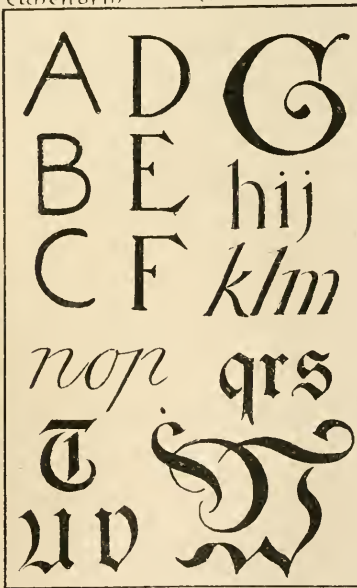 A D G
B E hij
C F klm
nop qrs
T W
u v